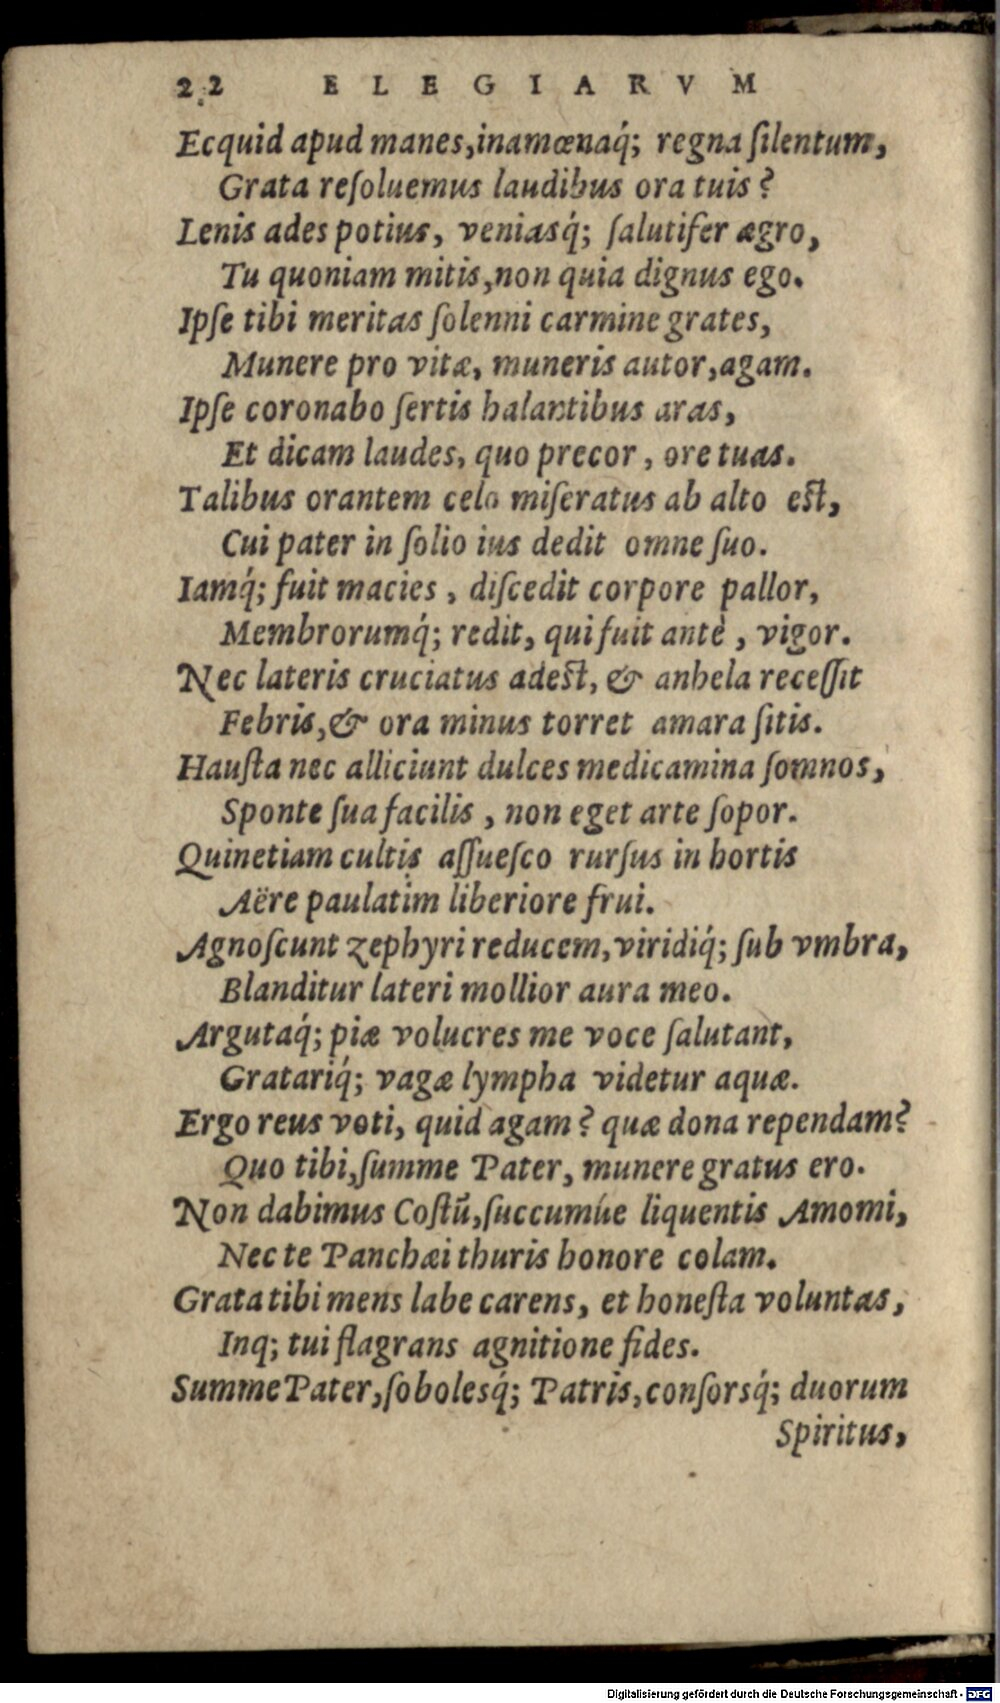 22 ELEGIARVM
Ecquid apud manes,inamœnaq́; regna ſilentum,
Grata reſoluemus laudibus ora tuis?
Lenis ades potius, veniasq́; ſalutifer ægro,
Tu quoniam mitis,non quia dignus ego.
Ipſe tibi meritas ſolenni carmine grates,
Munere pro vitæ, muneris autor,agam.
Ipſe coronabo ſertis halantibus aras,
Et dicam laudes, quo precor, ore tuas.
Talibus orantem celo miſeratus ab alto est,
Cui pater in ſolio ius dedit omne ſuo.
Iamq́; fuit macies, diſcedit corpore pallor,
Membrorumq́; redit, qui fuit antè, vigor.
Nec lateris cruciatus adest, & anhela receſſit
Febris,& ora minus torret amara ſitis.
Hauſta nec alliciunt dulces medicamina ſomnos,
Sponte ſua facilis, non eget arte ſopor.
Quinetiam cultis aſſueſco rurſus in hortis
Aëre paulatim liberiore frui.
Agnoſcunt zephyri reducem,viridiq́; ſub vmbra,
Blanditur lateri mollior aura meo.
Argutaq́; piæ volucres me voce ſalutant,
Gratariq́; vagæ lympha videtur aquæ.
Ergo reus voti, quid agam? quæ dona rependam?
Quo tibi,ſumme Pater, munere gratus ero.
Non dabimus Coſtū,ſuccumúe liquentis Amomi,
Nec te Panchæi thuris honore colam.
Grata tibi mens labe carens, et honeſta voluntas,
Inq; tui flagrans agnitione fides.
Summe Pater,ſobolesq́; Patris,conſorsq́; duorum
Spiritus,
Digitalisierung gefördert durch die Deutsche Forschungsgemeinschaft - DFG